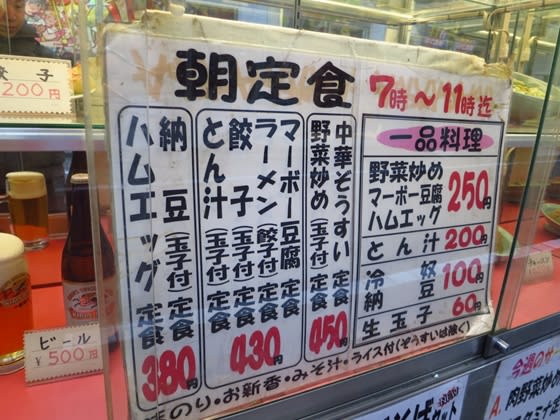 朝定食 7時～11時迄
中華ぞうすい定食
野菜炒め(玉子付)定食
450円
マーボー豆腐定食
ラーメン(餃子付)定食
餃子(玉子付)定食
とん汁(玉子付)定食
430円
納豆(玉子付)定食
ハムエッグ定食
380円
一品料理
野菜炒め
マーボー豆腐
ハムエッグ
250円
とん汁 200円
冷奴
納豆
100円
生玉子 60円
のり・お新香・みそ汁・ライス付(ぞうすいは除く)
餃子
200円
ビール
¥500円
今週のサー
A.肉野菜炒め